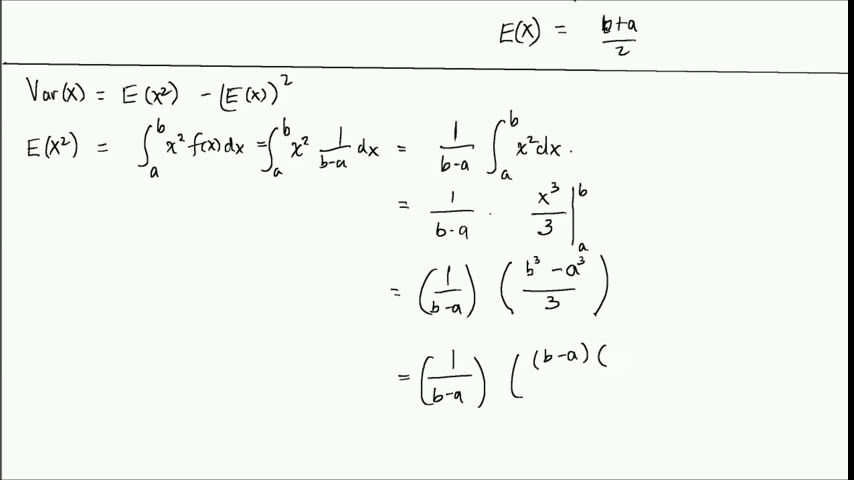 E(X) = b+a/2
Var(X) = E(X²) - (E(X))²
E(X²) = ∫_a^b x² f(x) dx = ∫_a^b x² 1/(b-a) dx = 1/(b-a) ∫_a^b x² dx.
= 1/(b-a) · x³/3 |_a^b
= (1/(b-a)) ((b³ - a³)/3)
= (1/(b-a)) ( (b-a) (